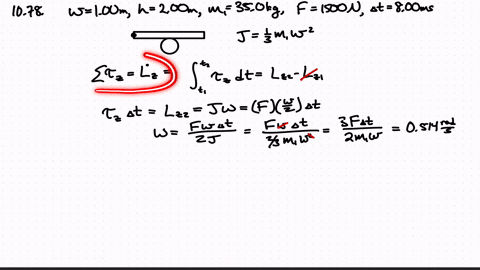 10.78. w=1.00m, h=2.00m, m₁=35.0kg, F=1500N, Δt=8.00ms
J=⅓m₁w²
Στ_z = L̇_z = ∫_{t₁}^{t₂} τ_z dt = L_{z2} - L_{z1}
τ_z Δt = L_{z2} = Jω = (F)(w/2)Δt
ω = FwΔt/2J = FwΔt/(2/3 m₁w²) = 3FΔt/2m₁w = 0.514 rad/s